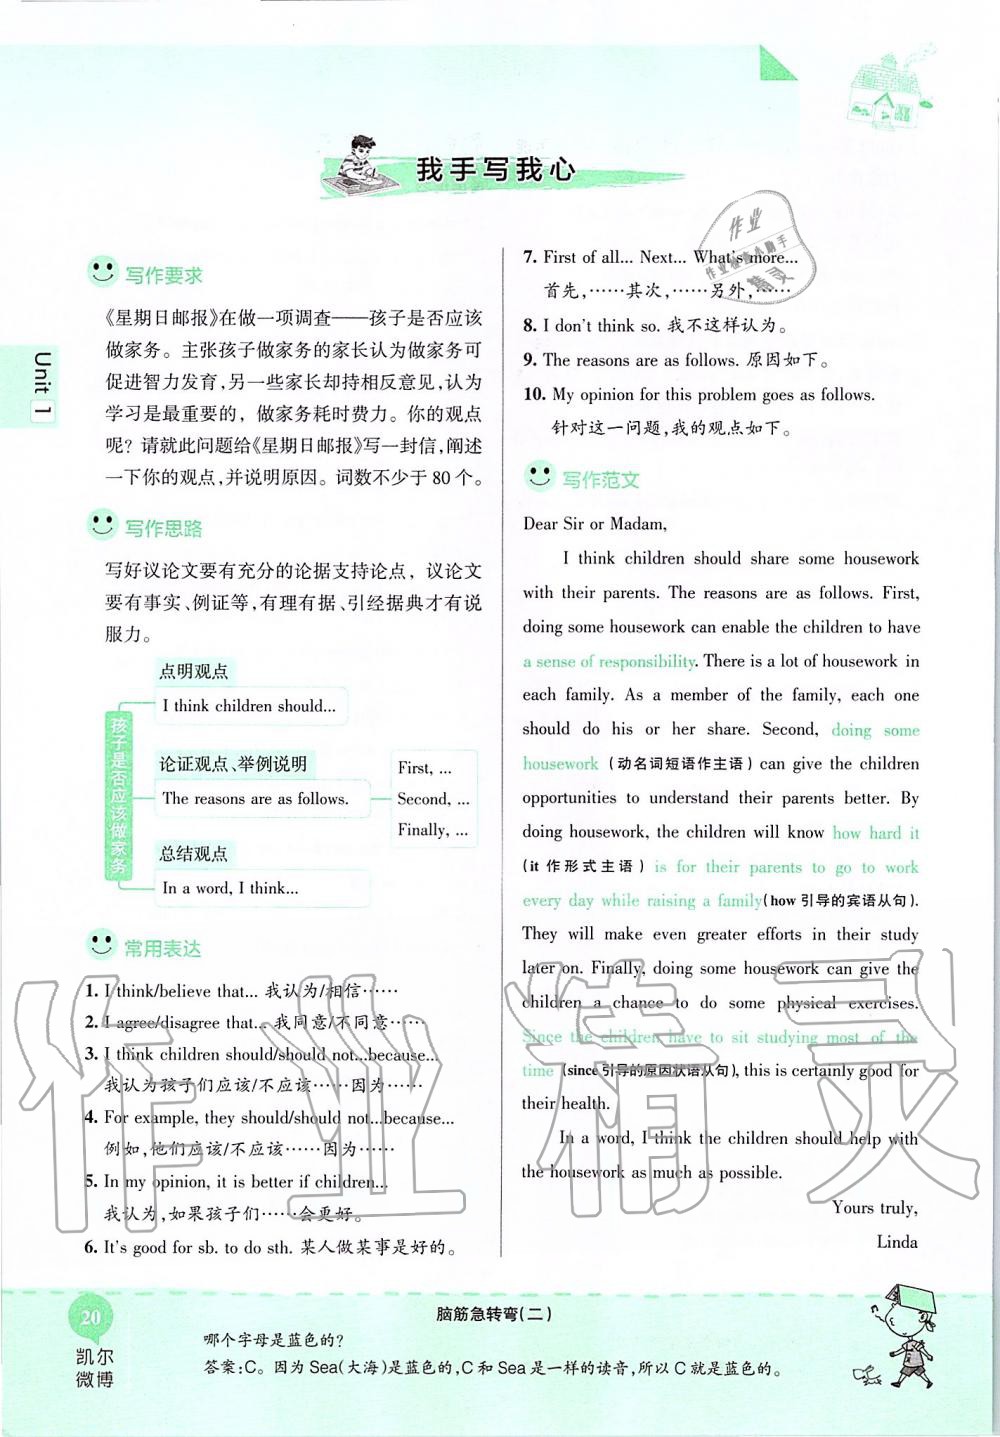 我手写我心
Unit 1
写作要求
《星期日邮报》在做一项调查——孩子是否应该
做家务。主张孩子做家务的家长认为做家务可
促进智力发育,另一些家长却持相反意见,认为
学习是最重要的，做家务耗时费力。你的观点
呢？请就此问题给《星期日邮报》写一封信,阐述
一下你的观点,并说明原因。词数不少于 80 个。
写作思路
写好议论文要有充分的论据支持论点，议论文
要有事实、例证等,有理有据、引经据典才有说
服力。
孩子是否应该做家务
点明观点
I think children should...
论证观点、举例说明
The reasons are as follows.
First, ...
Second, ...
Finally, ...
总结观点
In a word, I think...
常用表达
1. I think/believe that... 我认为/相信……
2. I agree/disagree that... 我同意/不同意……
3. I think children should/should not...because...
我认为孩子们应该/不应该……因为……
4. For example, they should/should not...because...
例如,他们应该/不应该……因为……
5. In my opinion, it is better if children...
我认为,如果孩子们……会更好。
6. It's good for sb. to do sth. 某人做某事是好的。
7. First of all... Next... What's more...
首先,……其次,……另外,……
8. I don't think so. 我不这样认为。
9. The reasons are as follows. 原因如下。
10. My opinion for this problem goes as follows.
针对这一问题,我的观点如下。
写作范文
Dear Sir or Madam,
I think children should share some housework
with their parents. The reasons are as follows. First,
doing some housework can enable the children to have
a sense of responsibility. There is a lot of housework in
each family. As a member of the family, each one
should do his or her share. Second, doing some
housework (动名词短语作主语) can give the children
opportunities to understand their parents better. By
doing housework, the children will know how hard it
(it 作形式主语) is for their parents to go to work
every day while raising a family(how 引导的宾语从句).
They will make even greater efforts in their study
later on. Finally, doing some housework can give the
children a chance to do some physical exercises.
Since the children have to sit studying most of the
time (since引导的原因状语从句), this is certainly good for
their health.
In a word, I think the children should help with
the housework as much as possible.
Yours truly,
Linda
作业
作业精灵
20
凯尔
微博
脑筋急转弯(二)
哪个字母是蓝色的?
答案:C。因为 Sea(大海)是蓝色的,C 和 Sea 是一样的读音,所以 C 就是蓝色的。